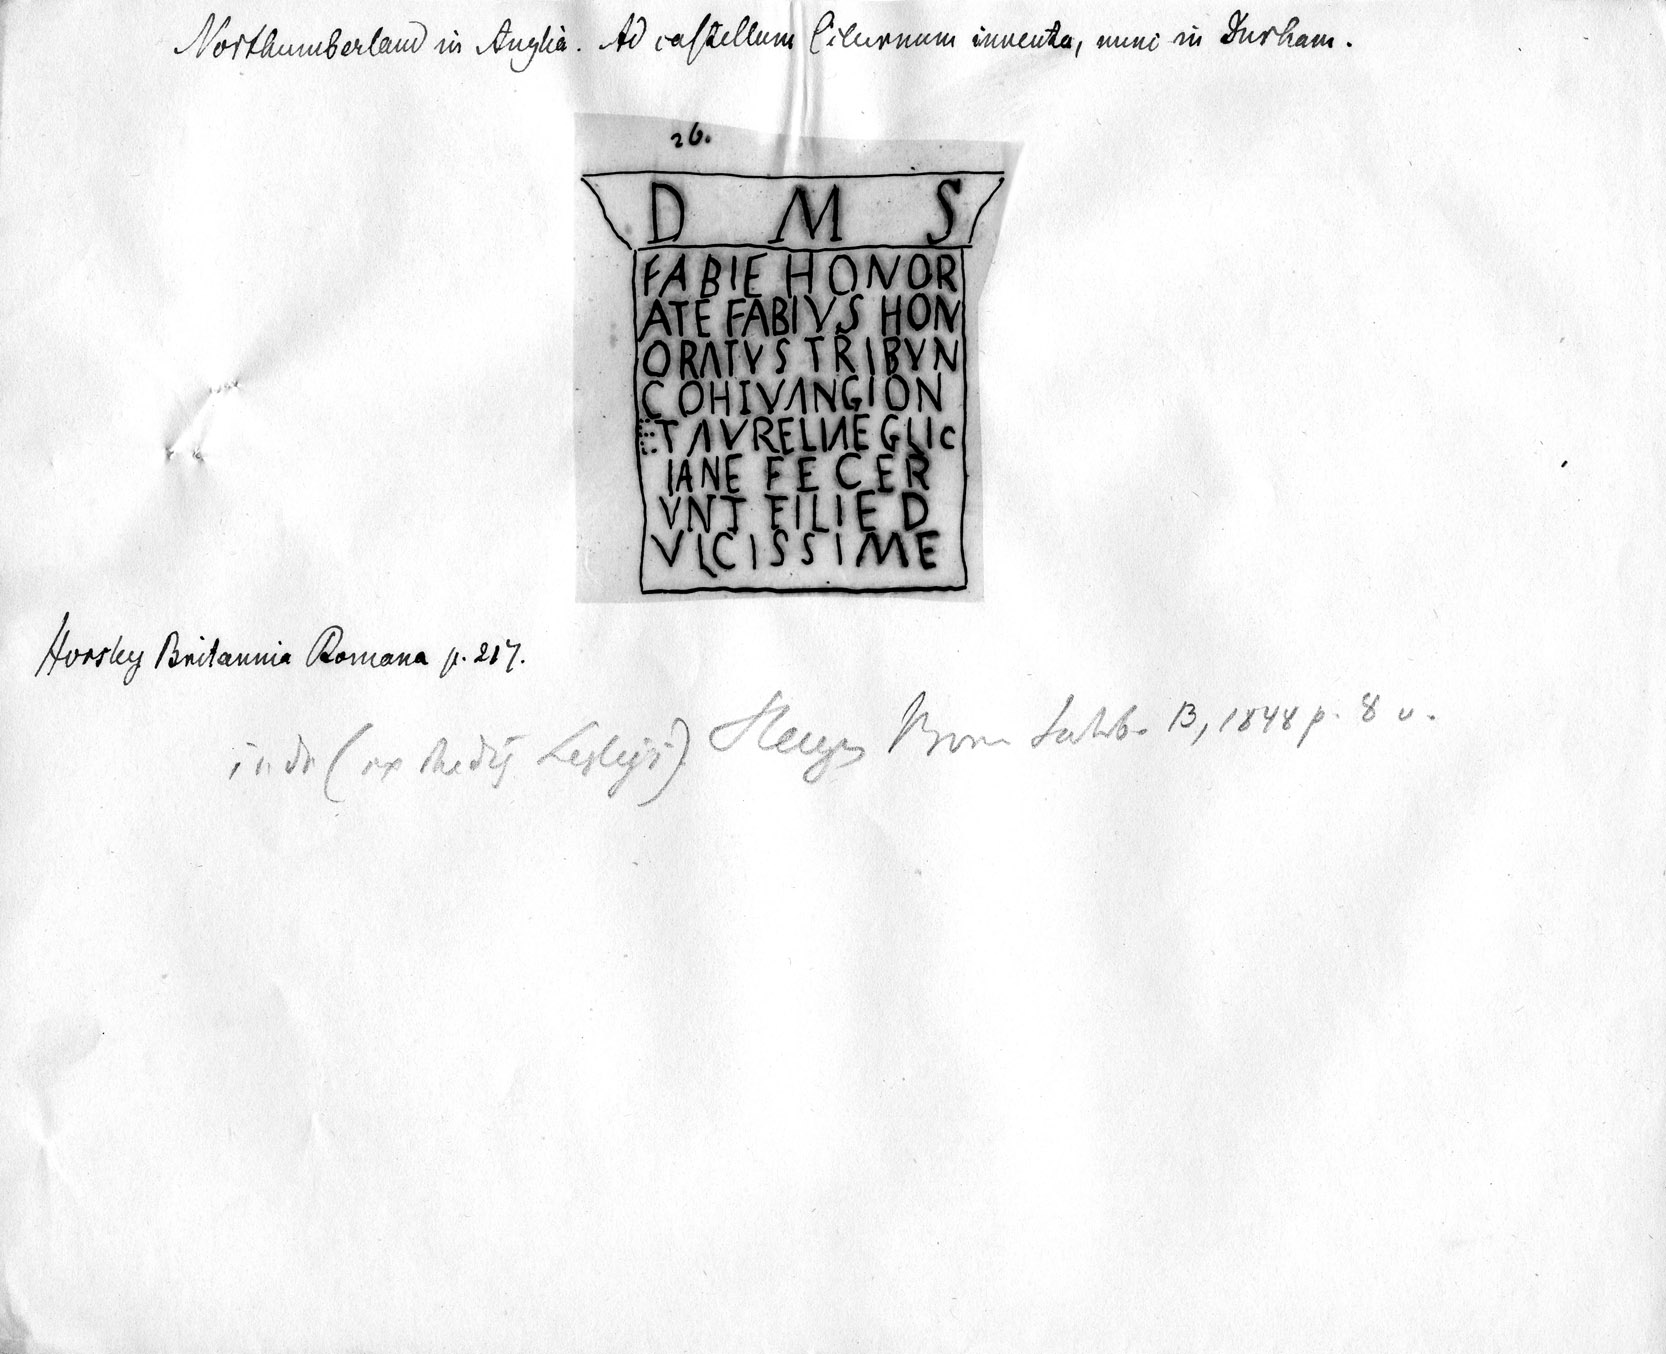 Northumberland in Anglia. Ad castellum Cilurnum inventa, nunc in Durham.
26.
D M S
FABIE HONOR
ATE FABIVS HON
ORATVS TRIBVN
COH I VANGION
ET AVRELIAE GLIC
IANE FECER
VNT FILIE D
VLCISSIME
Horsley Britannia Romana p. 217.
inde (ex schedis Lersleijsi) Bonn Jahrb. 13, 1848 p. 8 u.